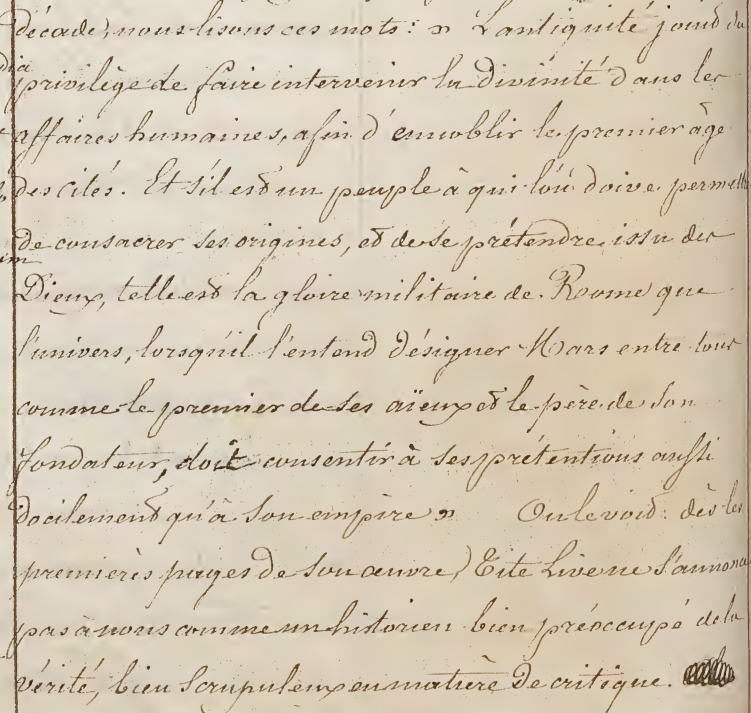 décade, nous lisons ces mots : » L'antiquité jouit du
privilège de faire intervenir la divinité dans les
affaires humaines, afin d'ennoblir le premier âge
des cités. Et s'il est un peuple à qui l'on doive permettre
de consacrer ses origines, et de se prétendre issu des
Dieux, telle est la gloire militaire de Rome que
l'univers, lorsqu'il l'entend désigner Mars entre tous
comme le premier de ses aïeux et le père de son
fondateur, doit consentir à ses prétentions aussi
docilement qu'à son empire » On le voit : dès les
premières pages de son œuvre, Tite Live ne s'annonce
pas à nous comme un historien bien préoccupé de la
vérité, bien scrupuleux en matière de critique.